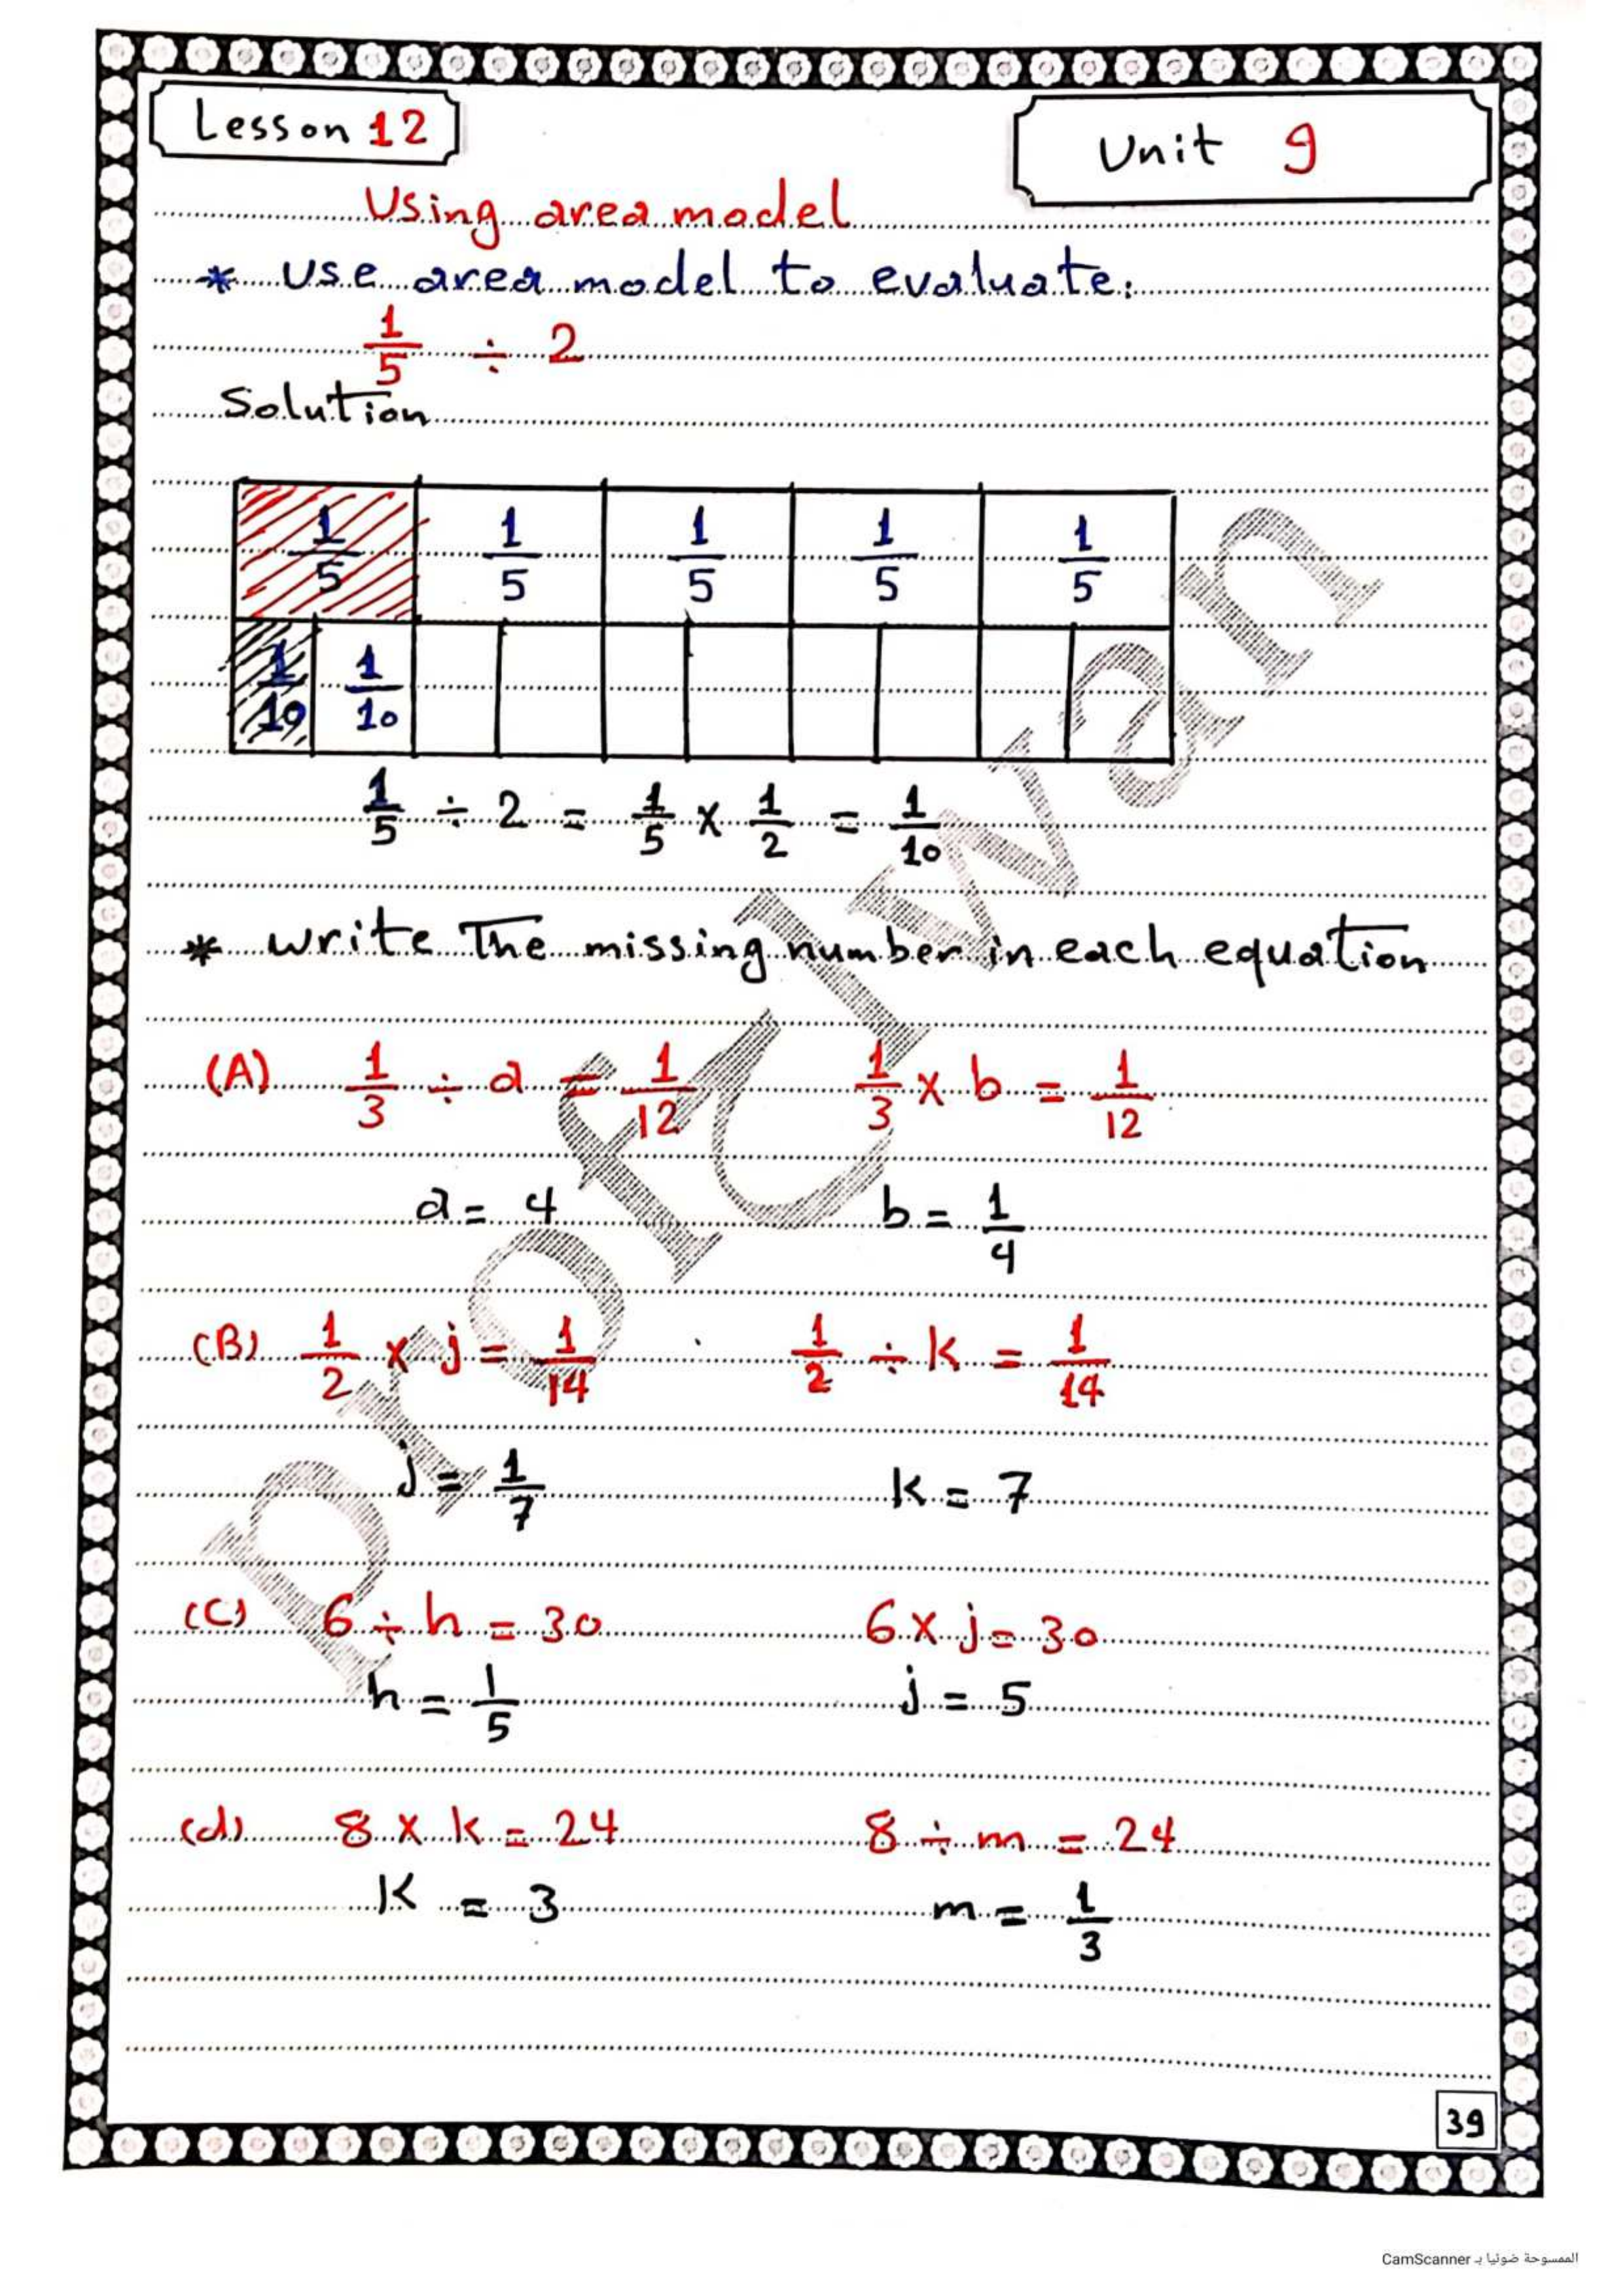 Lesson 12
Unit 9
Using area model
* Use area model to evaluate:
1/5 ÷ 2
Solution
1/5 1/5 1/5 1/5 1/5
1/10 1/10
1/5 ÷ 2 = 1/5 × 1/2 = 1/10
* write The missing number in each equation
(A) 1/3 ÷ a = 1/12 1/3 × b = 1/12
a = 4 b = 1/4
(B) 1/2 × j = 1/14 1/2 ÷ k = 1/14
j = 1/7 K = 7
(C) 6 ÷ h = 30 6 × j = 30
h = 1/5 j = 5
(d) 8 × k = 24 8 ÷ m = 24
K = 3 m = 1/3
39
الممسوحة ضوئيا بـ CamScanner